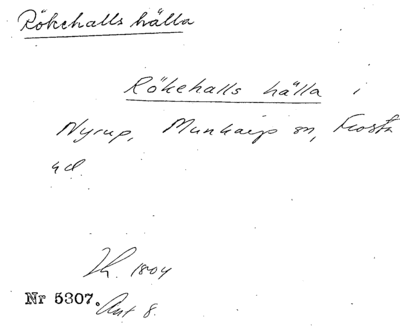 Rökehalls hälla
Rökehalls hälla i
Nyrup, Munkarp sn, Frosta
hd.
Lh. 1804
Nr 5307. Akt 8.